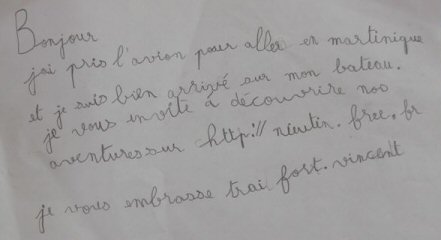 Bonjour
jai pris l'avion pour aller en martinique
et je suis bien arrivé sur mon bateau.
je vous invite à découvrire nos
aventures sur http://nieutin.free.fr
je vous embrasse trai fort. vincent